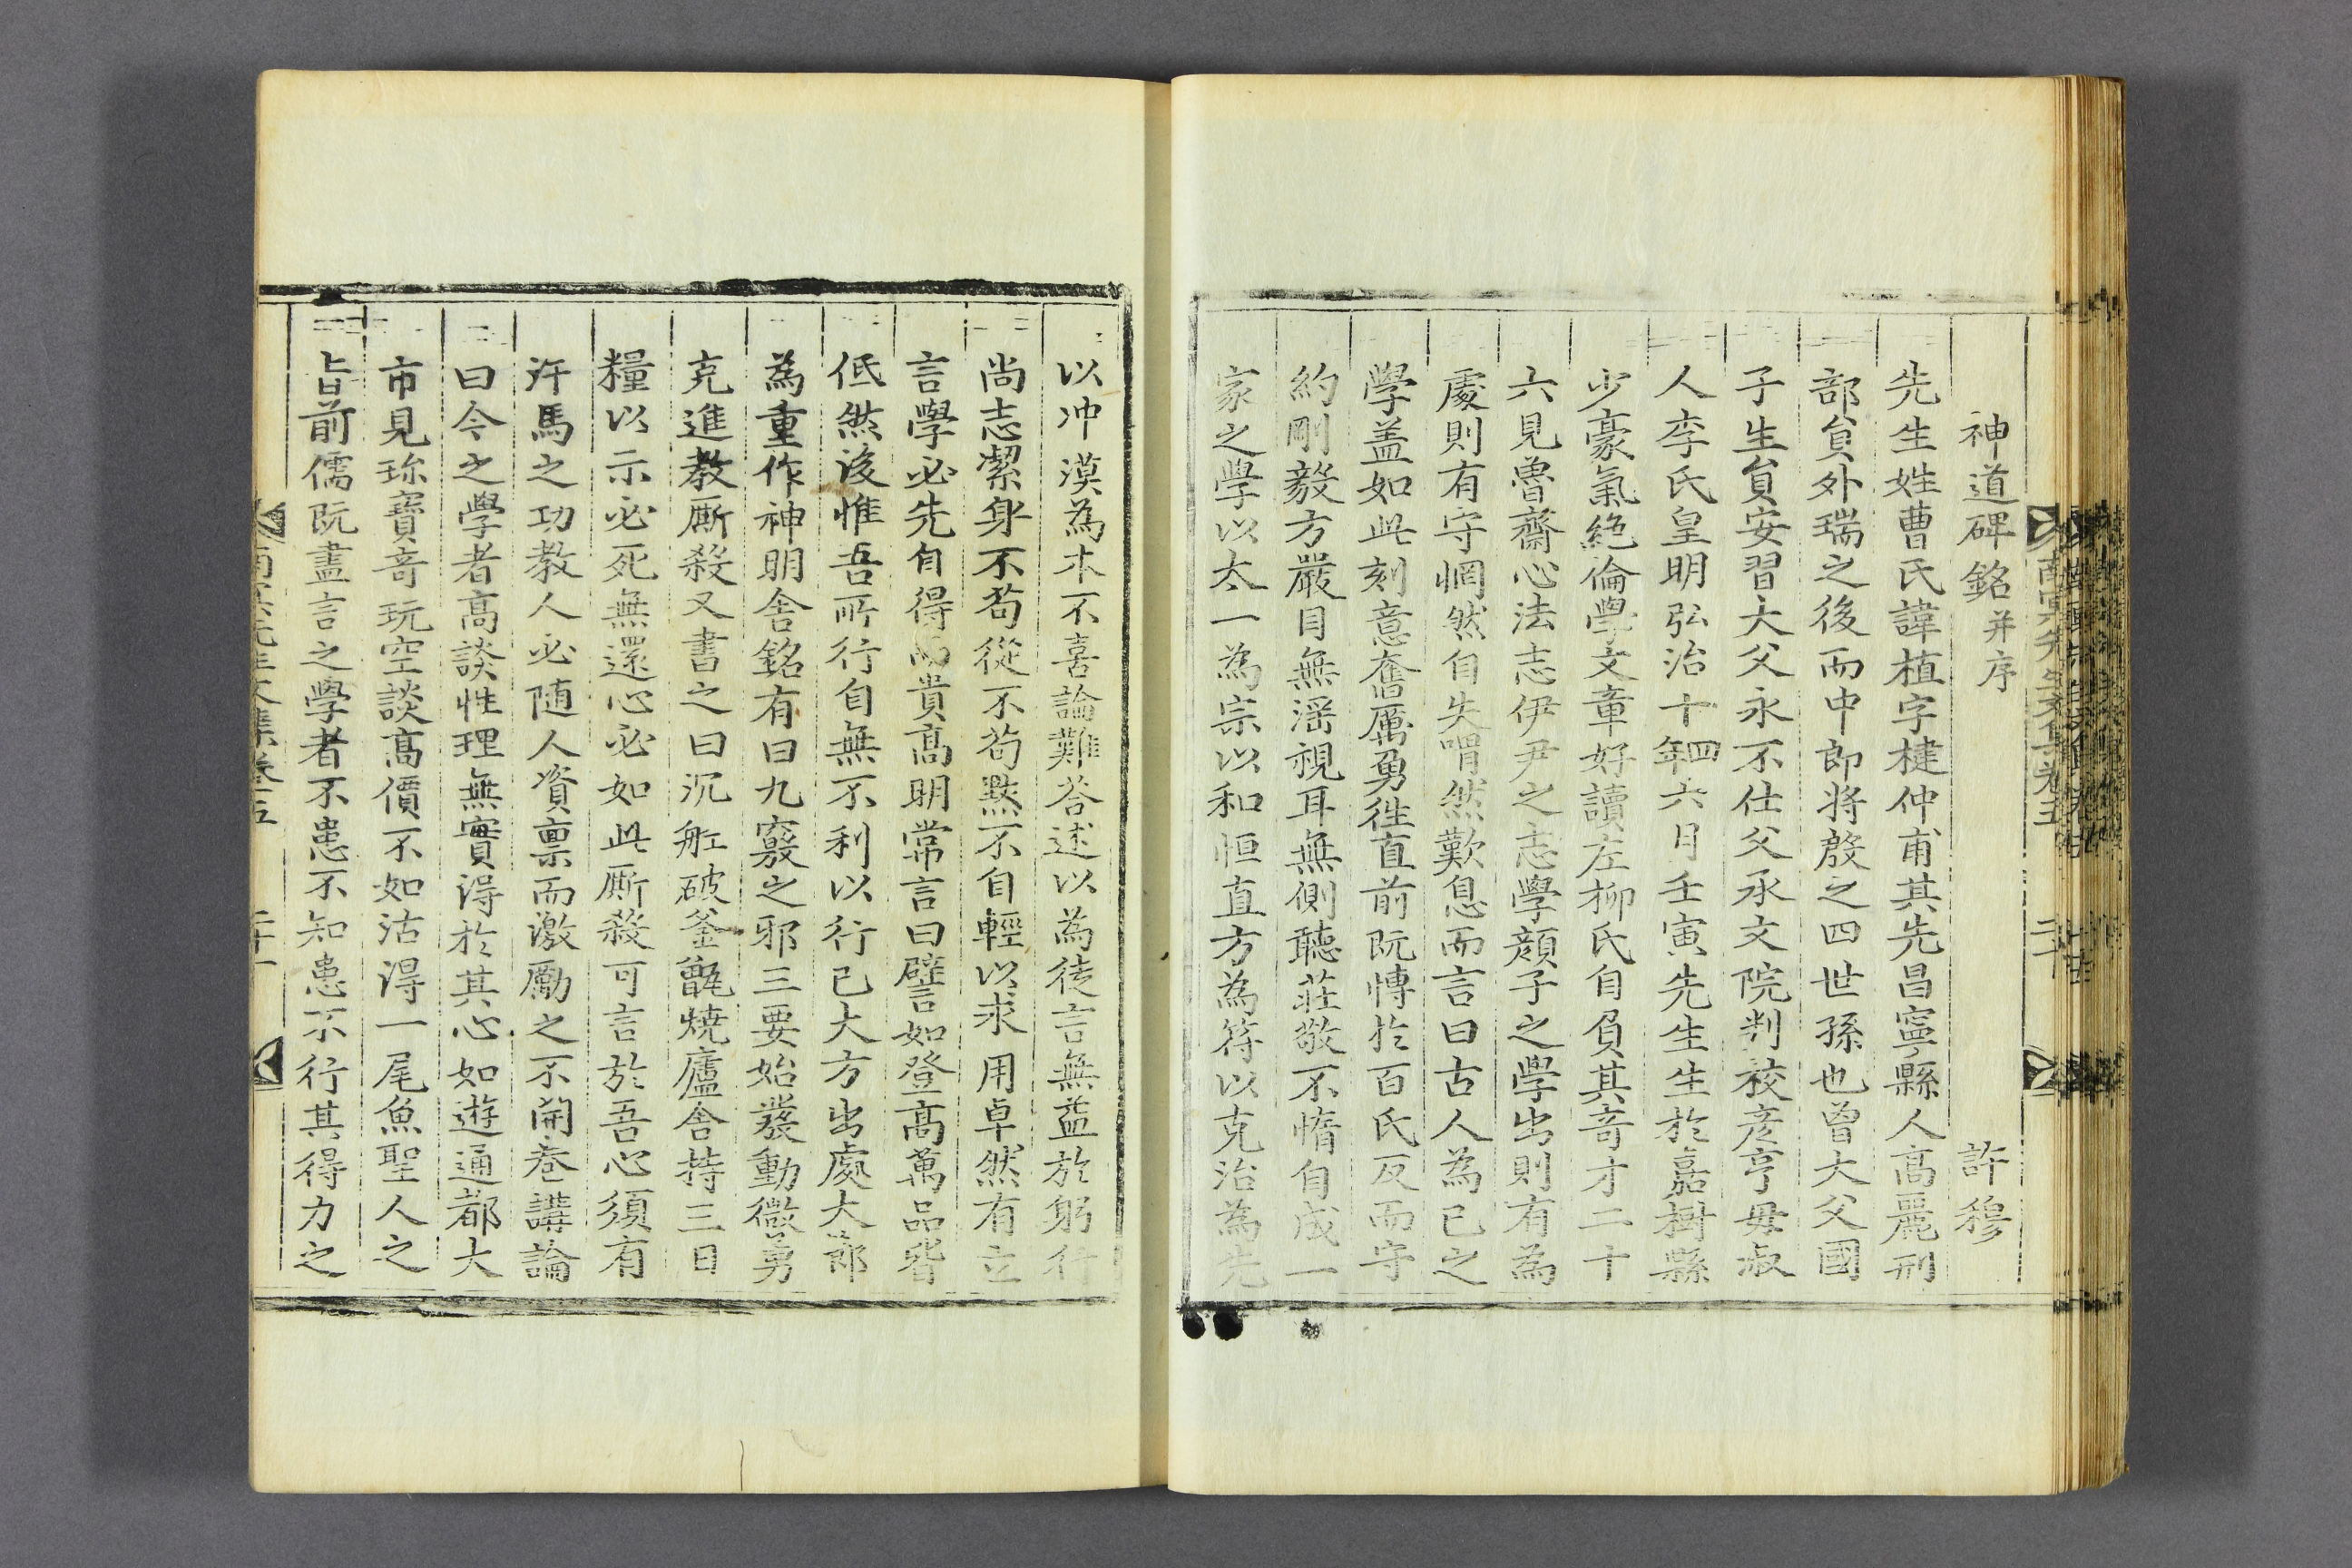 神道碑銘并序 許穆
先生姓曹氏諱植字楗仲甫其先昌寧縣人高麗刑
部員外瑞之後而中郎將殷之四世孫也曾大父國
子生員安習大父永不仕父承文院判校彦亨母淑
人李氏皇明弘治十四年六月壬寅先生生於嘉樹縣
少豪氣絶倫學文章好讀左柳氏自負其奇才二十
六見魯齋心法志伊尹之志學顔子之學出則有為
處則有守惘然自失喟然歎息而言曰古人為己之
學盖如此刻意奮厲勇徃直前既博於百氏反而守
約剛毅方嚴目無滛視耳無側聽莊敬不惰自成一
家之學以太一為宗以和恒直方為符以克治為先
以冲漠為本不喜論難答述以為徒言無益於躬行
尚志潔身不苟從不苟默不自輕以求用卓然有立
言學必先自得而貴高明常言曰譬如登高萬品皆
低然後惟吾所行自無不利以行己大方出處大節
為重作神明舍銘有曰九竅之邪三要始發動微勇
克進教厮殺又書之曰沉舡破釜甑燒廬舍持三日
糧以示必死無還心必如此厮殺可言於吾心須有
汗馬之功教人必随人資禀而激勵之不開卷講論
曰今之學者高談性理無實得於其心如遊通都大
市見珎寶竒玩空談高價不如沽得一尾魚聖人之
旨前儒既盡言之學者不患不知患不行其得力之
南冥先生文集卷五 二十
南冥先生文集卷五 二十一